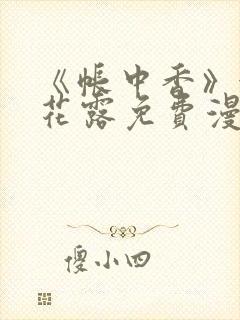 《帐中香》
花露免费漫
傻小四